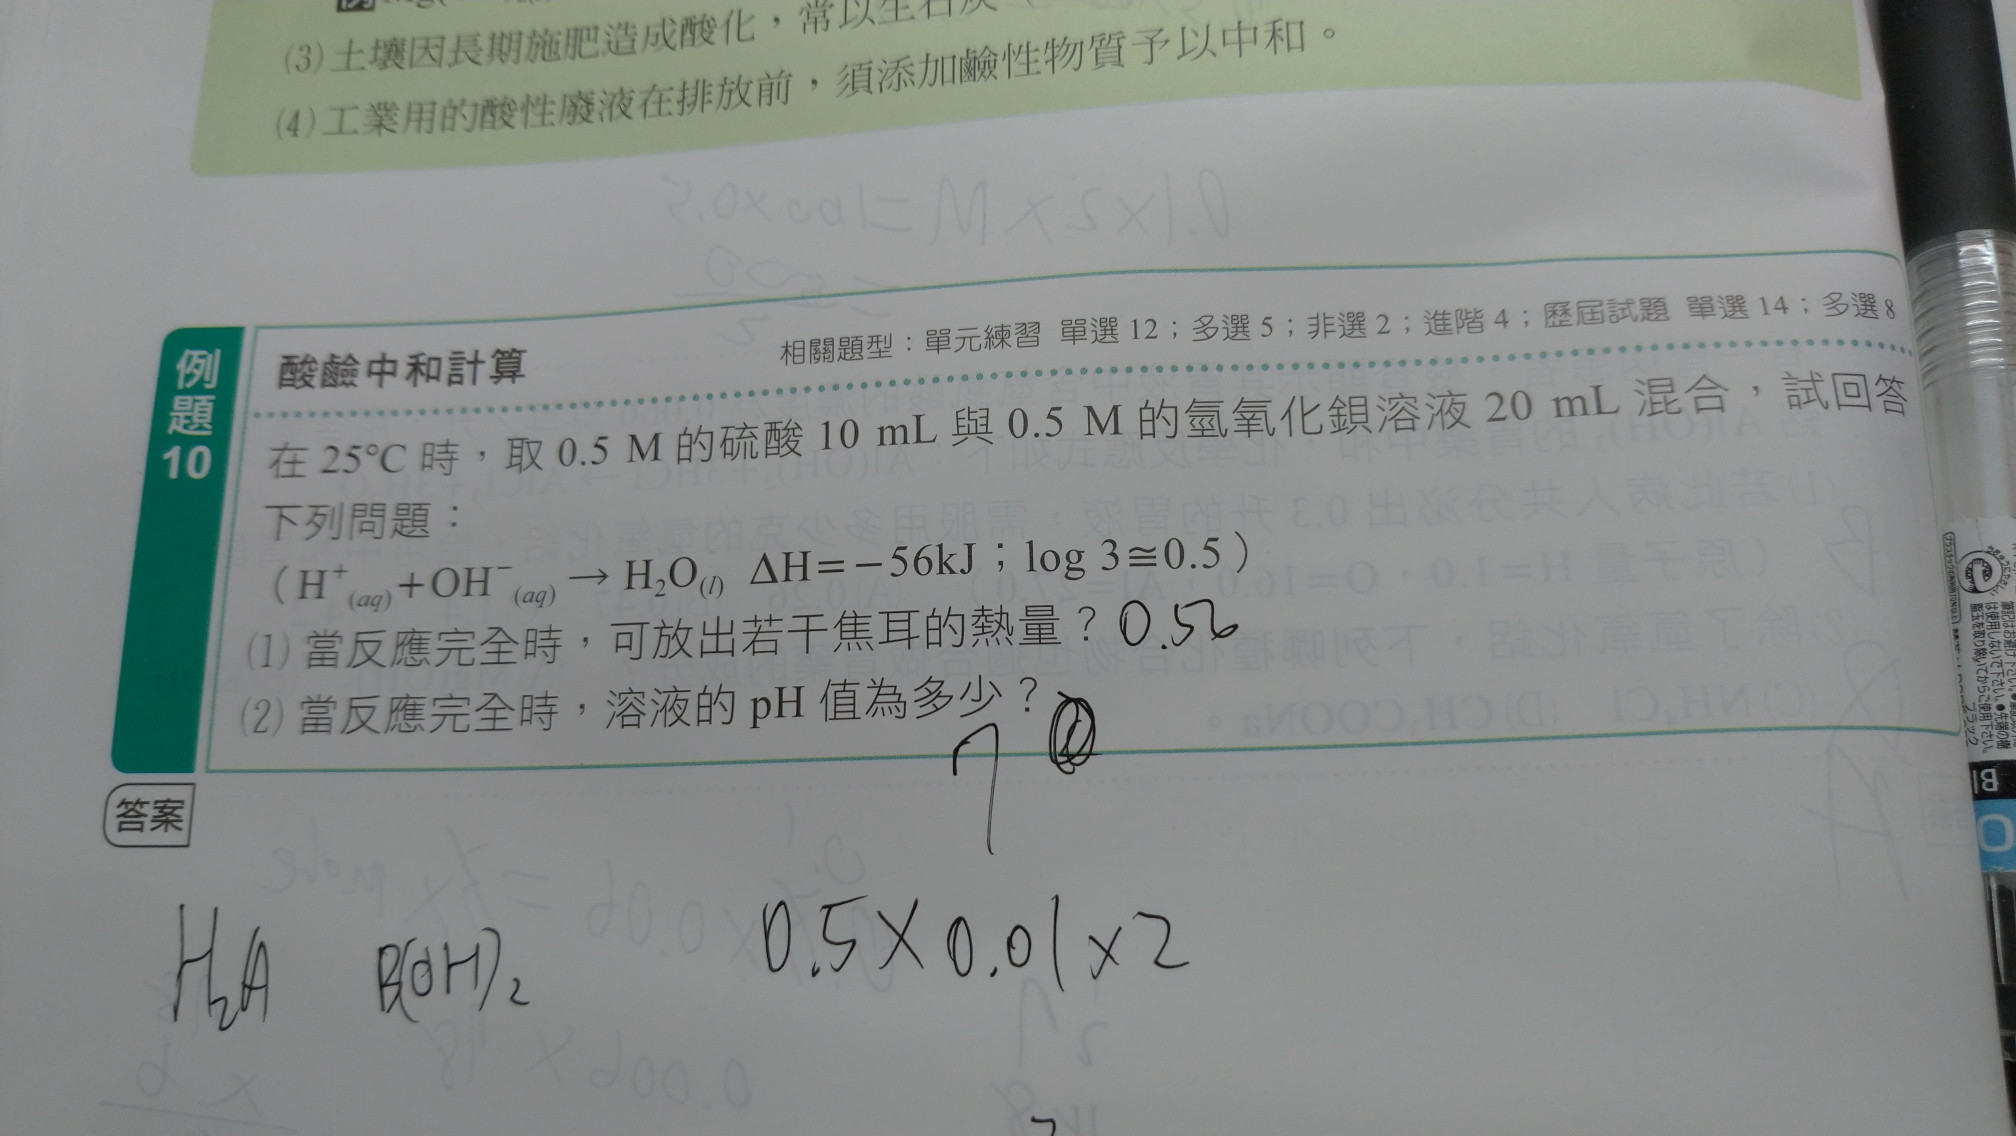 (3)土壤因長期施肥造成酸化，常以生石灰
(4)工業用的酸性廢液在排放前，須添加鹼性物質予以中和。
例題10
酸鹼中和計算
相關題型：單元練習 單選12；多選5；非選2；進階4；歷屆試題 單選14；多選8
在25°C時，取0.5 M的硫酸10 mL與0.5 M的氫氧化鋇溶液20 mL混合，試回答
下列問題：
（H⁺(aq)+OH⁻(aq) → H₂O(l) ΔH=−56kJ；log 3≅0.5）
(1)當反應完全時，可放出若干焦耳的熱量？0.56
(2)當反應完全時，溶液的pH值為多少？
7
答案
H₂A B(OH)₂ 0.5×0.01×2